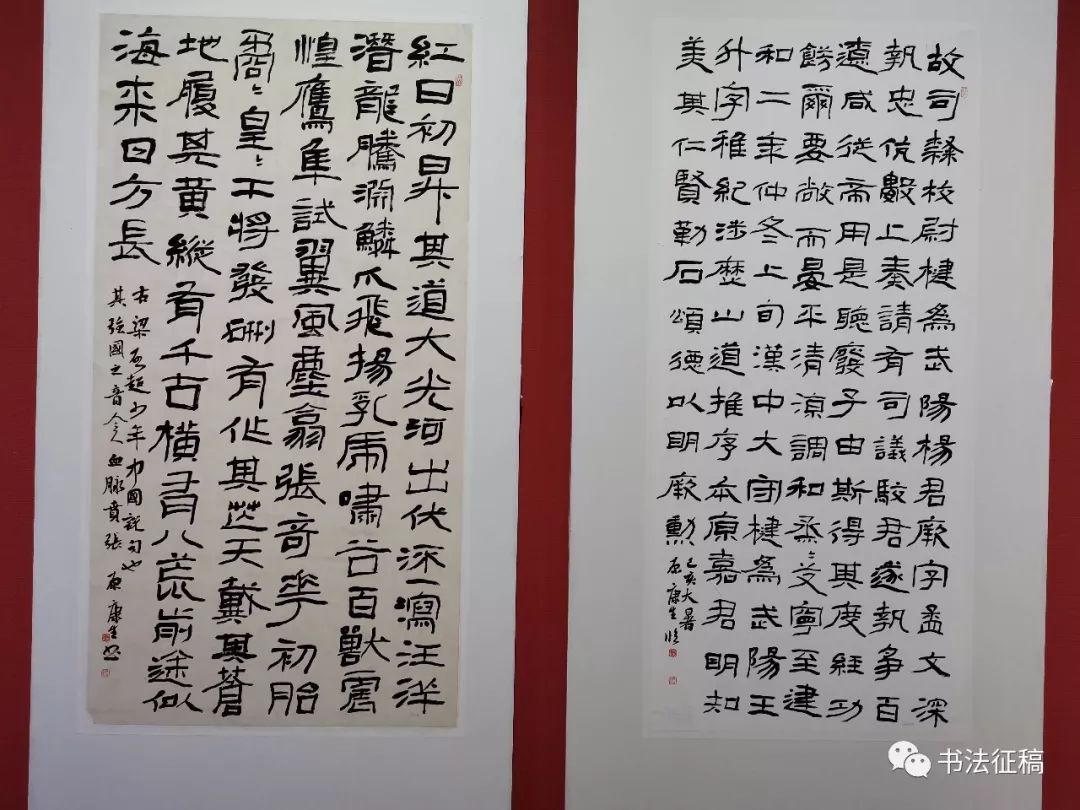 故司隸校尉楗為武陽楊君厥字孟文深
執忠伉數上奏請有司議駮君遂執爭百
遼咸從帝用是聽廢子由斯得其度經功
餝爾要敞而晏平清涼調和烝〻艾寧至建
和二年仲冬上旬漢中大守楗為武陽王
升字稚紀涉歷山道推序本原嘉君明知
美其仁賢勒石頌德以明厥勳
己亥大暑
原康生臨
紅日初昇其道大光河出伏流一瀉汪洋
潛龍騰淵鱗爪飛揚乳虎嘯谷百獸震
惶鷹隼試翼風塵翕張奇花初胎
矞〻皇〻干將發硎有作其芒天戴其蒼
地履其黃縱有千古橫有八荒前途似
海來日方長
右梁啟超少年中國說句也
其強國之音令人血脉賁張 原康生書
书法征稿